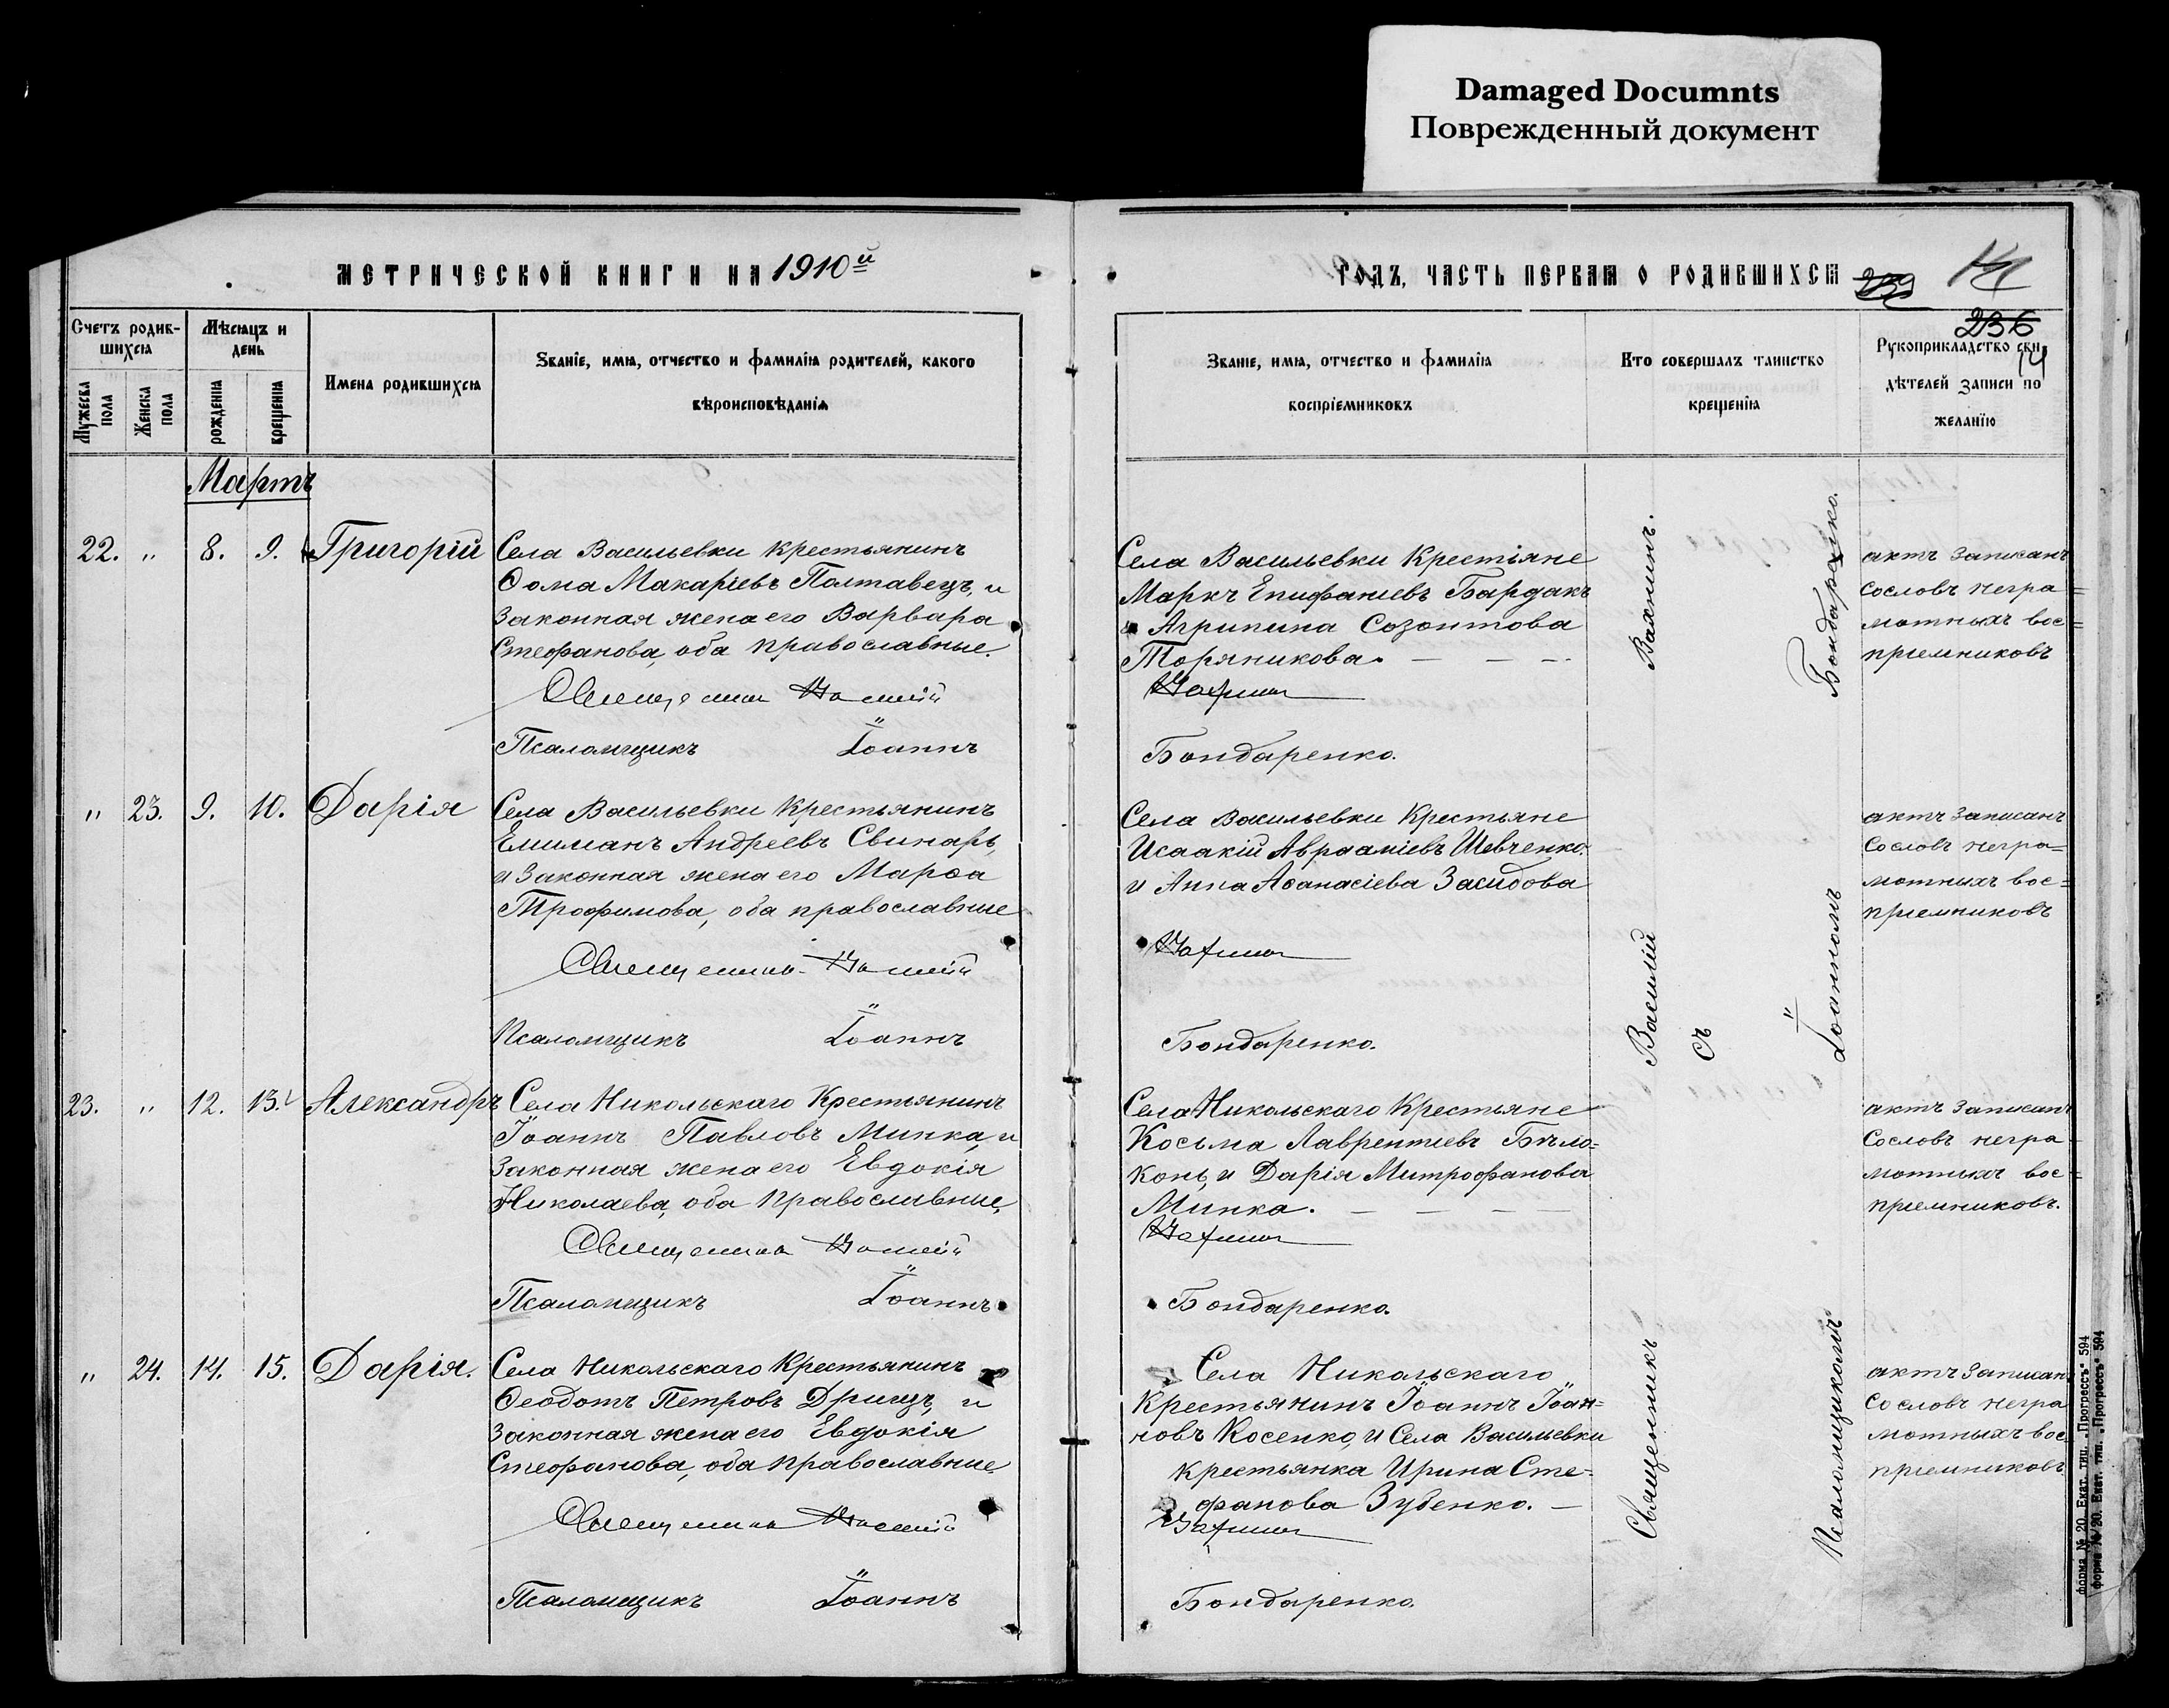 Damaged Documnts
Поврежденный документ
МЕТРИЧЕСКОЙ КНИГИ НА 1910й
Счетъ родив-
шихся
Мѣсяцъ и
день
Имена родившихся
Званіе, имя, отчество и фамилія родителей, какого
вѣроисповѣданія
Мужеска
пола
Женска
пола
рожденія
крещенія
Мартъ
22. " 8. 9. Григорій
Села Васильевки крестьянинъ
Ѳома Макаріевъ Полтавецъ, и
законная жена его Варвара
Стефанова, оба православные.
Священникъ Василій
Псаломщикъ Іоаннъ
" 23. 9. 10. Дарія
Села Васильевки крестьянинъ
Емиліанъ Андреевъ Свинарь,
и законная жена его Марѳа
Трофимова, оба православные
Священникъ Василій
Псаломщикъ Іоаннъ
23. " 12. 13. Александръ
Села Никольскаго Крестьянинъ
Іоаннъ Павловъ Минка, и
законная жена его Евдокія
Николаева, оба православные,
Священникъ Василій
Псаломщикъ Іоаннъ
" 24. 14. 15. Дарія.
Села Никольскаго Крестьянинъ
Ѳеодотъ Петровъ Дрищъ, и
законная жена его Евдокія
Стефанова, оба православные
Священникъ Василій
Псаломщикъ Іоаннъ
ГОДЪ, ЧАСТЬ ПЕРВАЯ О РОДИВШИХСЯ
239
236
14
Званіе, имя, отчество и фамилія
воспріемниковъ
Кто совершалъ таинство
крещенія
Рукоприкладство сви-
дѣтелей записи по
желанію
Села Васильевки Крестіяне
Маркъ Епифаніевъ Бардакъ
и Агрипина Созонтова
Торяникова. — — —
Вахнинъ
Бондаренко.
Села Васильевки Крестьяне
Исаакій Авраамівъ Шевченко.
и Анна Аѳанасіева Засидова
Вахнинъ
Бондаренко.
Села Никольскаго Крестьяне
Косьма Лаврентіевъ Бѣло-
конь, и Дарія Митрофанова
Минка. — — — —
Вахнинъ
Бондаренко.
Села Никольскаго
Крестьянинъ Іоаннъ Іоан=
новъ Косенко, и Села Васильевки
крестьянка Ирина Сте=
фанова Зубенко. —
Вахнинъ
Бондаренко.
Священникъ Василій Вахнинъ.
съ
Псаломщикомъ Іоанномъ Бондаренко.
актъ записанъ
со словъ негра=
мотныхъ вос=
пріемниковъ
актъ записанъ
со словъ негра=
мотныхъ вос=
пріемниковъ
актъ записанъ
со словъ негра
мотныхъ вос=
пріемниковъ.
актъ записан
со словъ негра
мотныхъ вос
пріемниковъ
форма № 20. Екат. тип. „Прогрессъ“ 594
форма № 20. Екат. тип. „Прогрессъ“ 594